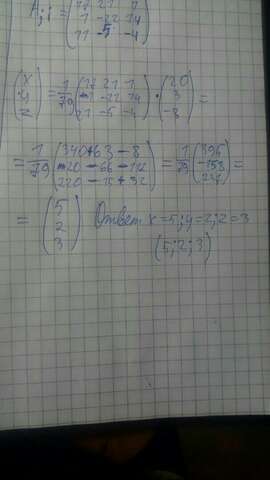 Aij = (17 21 1
1 -22 14
11 -5 -4)
(x y z) = 1/79 (17 21 1
-1 -22 14
11 -5 -4) · (20
3
-8) =
= 1/79 (340+63-8
-20-66-112
220-15+32) = 1/79 (395
-158
237) =
= (5
2
3) Ответ x=5; y=2; z=3
(5; 2; 3)